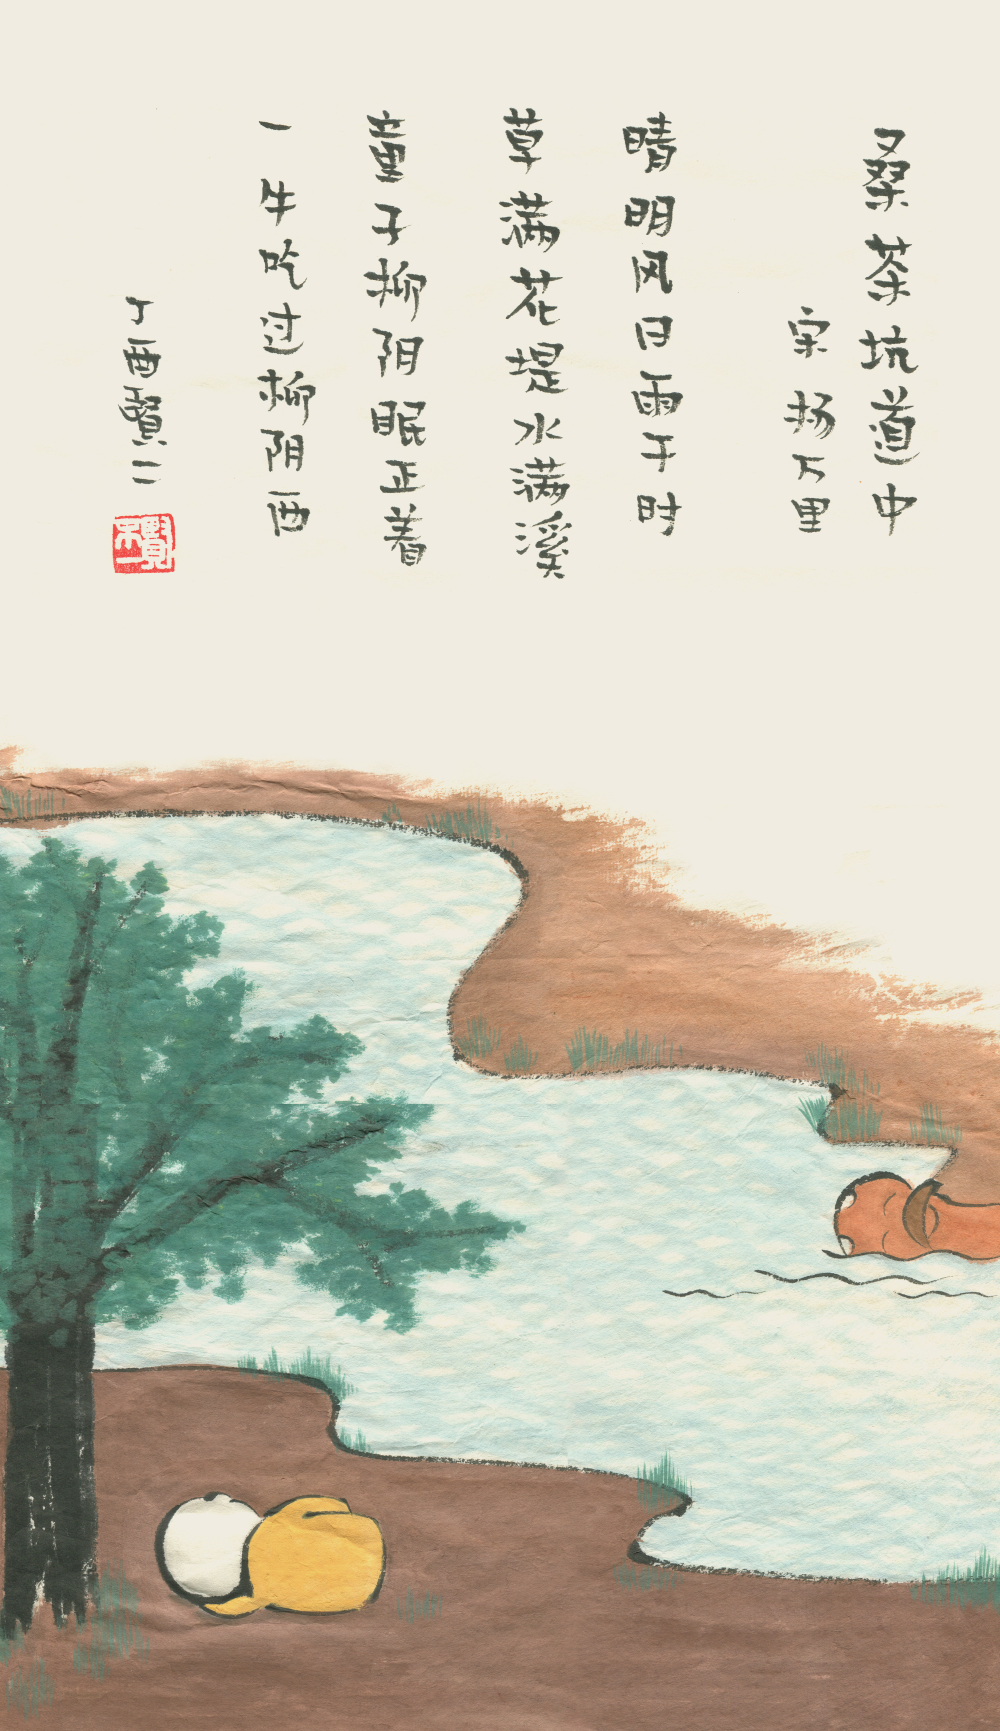 桑茶坑道中
宋 杨万里
晴明风日雨干时
草满花堤水满溪
童子柳阴眠正着
一牛吃过柳阴西
丁酉賢二